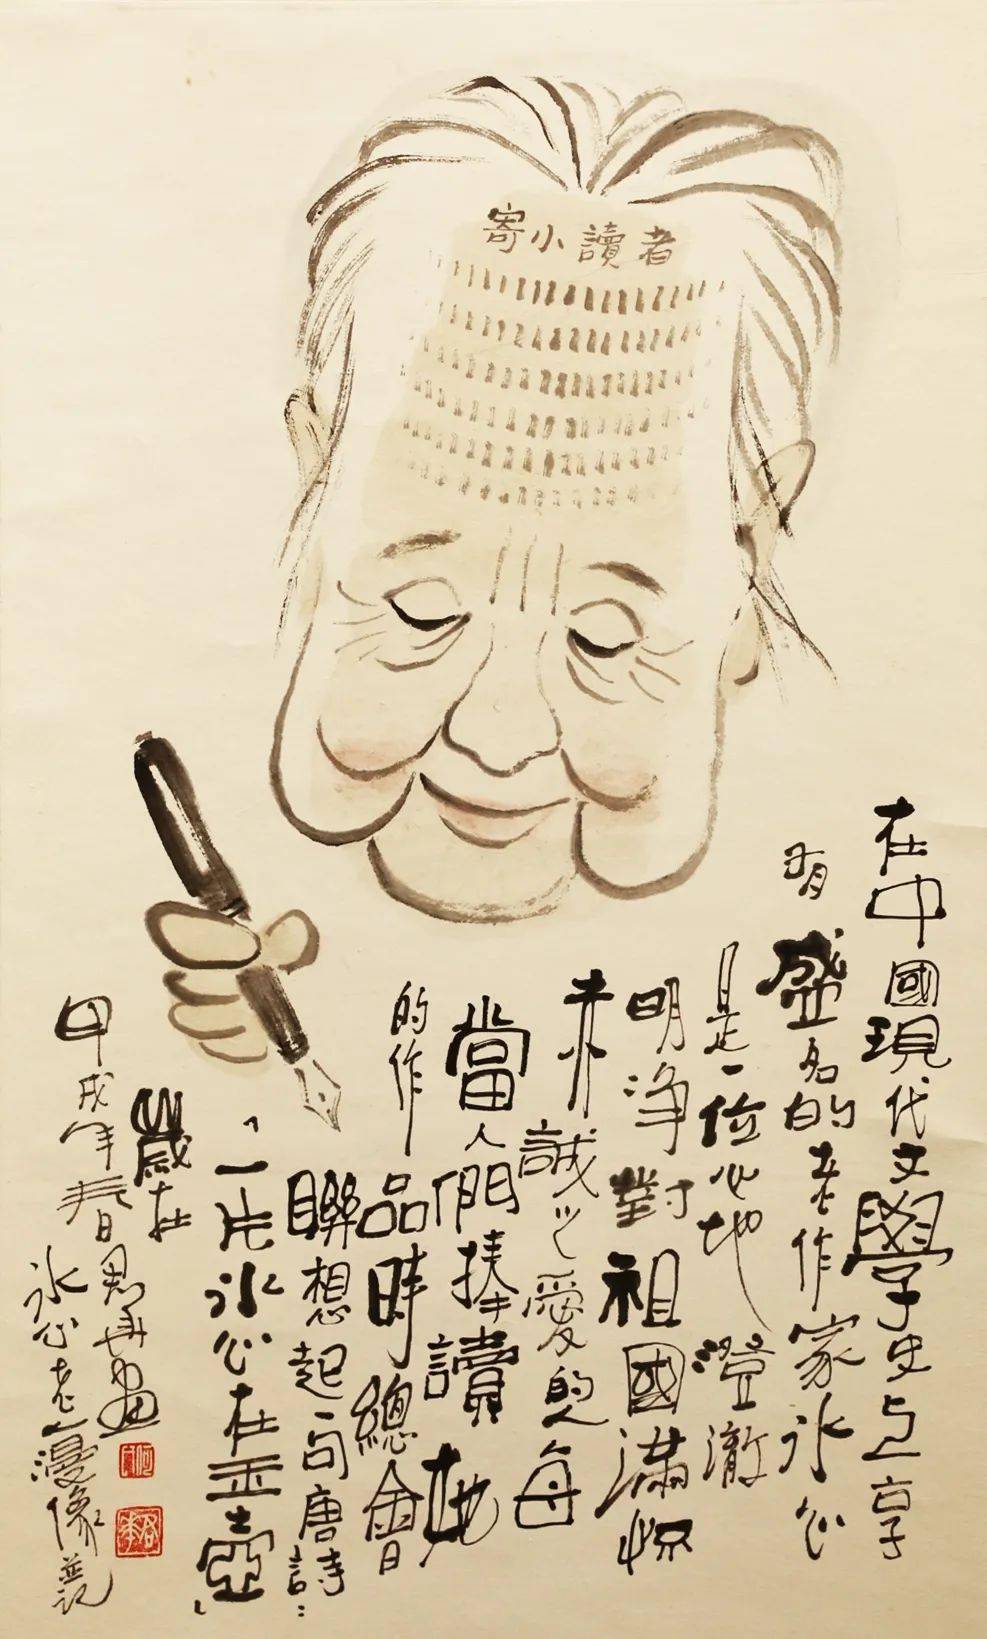 寄小讀者
在中國現代文學史上享
有盛名的老作家冰心
是一位心地澄澈
明净對祖國滿懷
赤誠之愛的人每
當人們捧讀她
的作品時總會
聯想起一句唐詩：
「一片冰心在玉壺」
歲在
甲戌年春日君華畫
冰心老人漫像並記